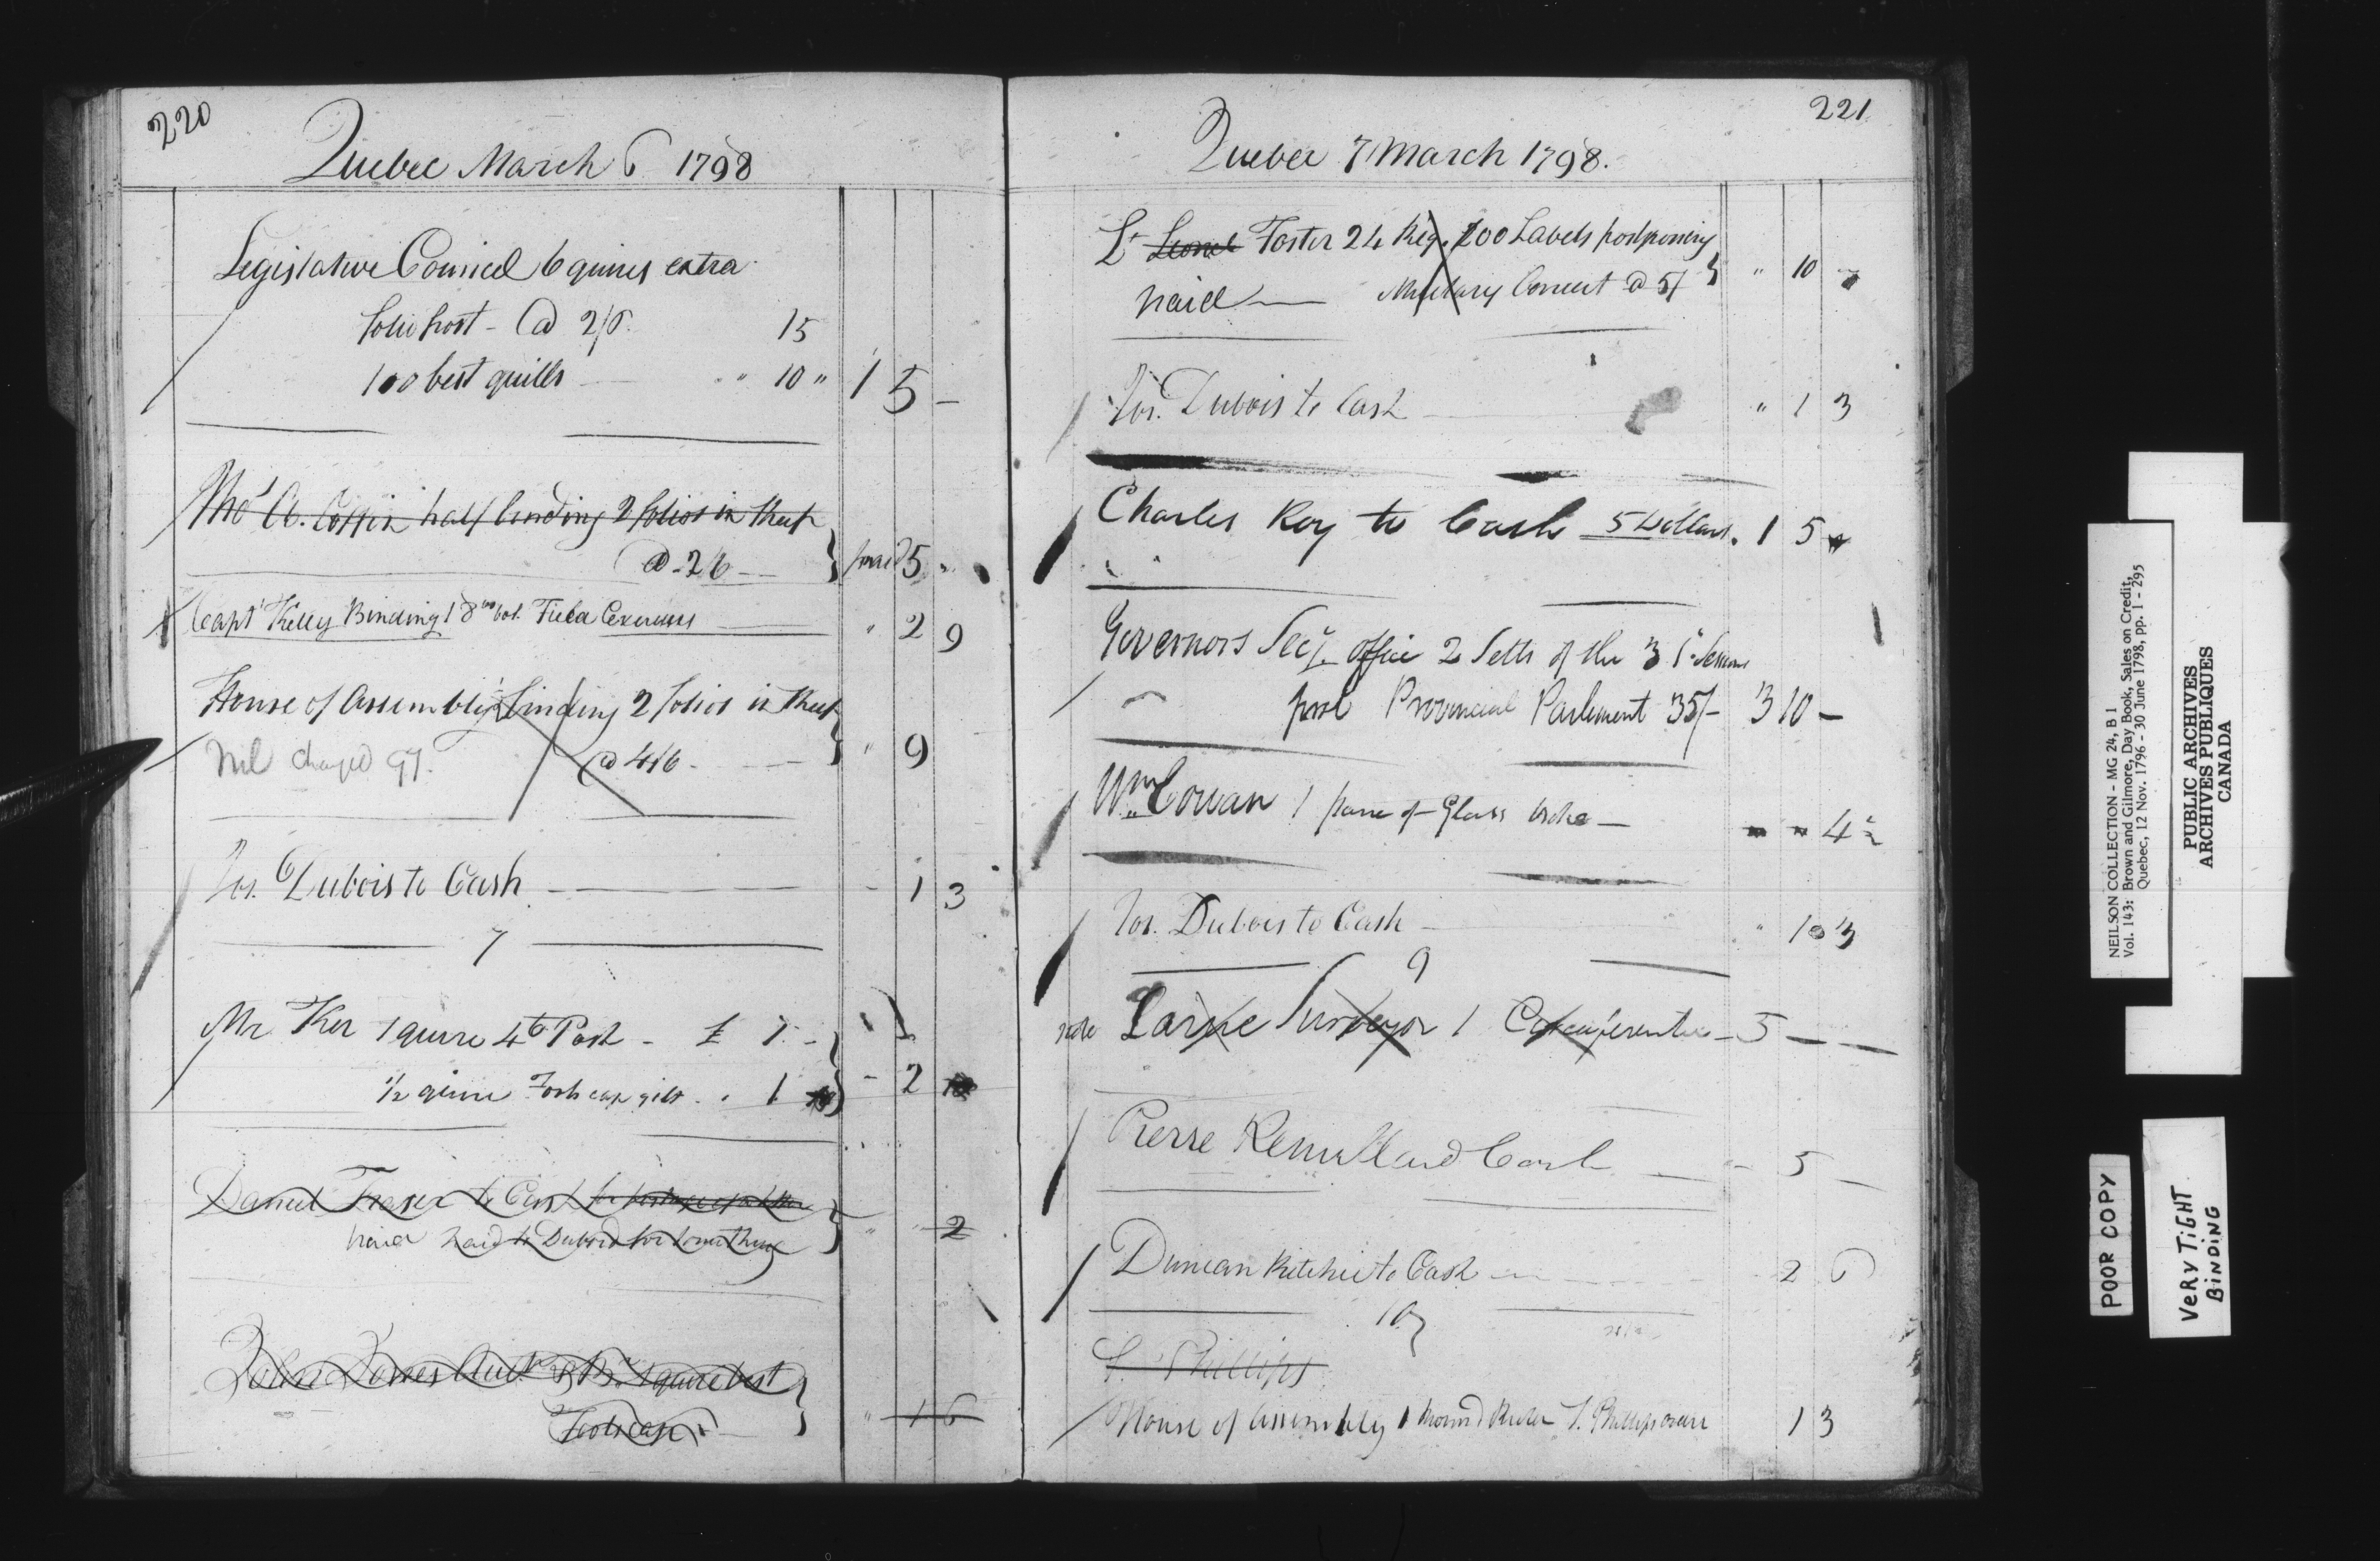 220
Quebec March 6 1798
Legislative Council 6 quires extra
folio post - @ 2/6. 15
100 best quills " 10 " 1 5 -
Thos A. Coffin half binding 2 folios in
@ 2/6 paid 5 "
Capt Kelly Binding 1 8vo vol. Field Exercises " 2 9
House of Assembly binding 2 folios in
@ 4/6 - " 9
charged
Jos. Dubois to Cash - 1 3
7
Mr Ker 1 quire 4to Post - £ 1 -
1/2 quire Foolscap gilt . 1 - 2
Daniel Fraser to Cash for postage of a letter
paid to for something " 2
John Jones Auctr & Br. 1 quire best
Foolscap " 1 6
221
Quebec 7 March 1798.
Lt Foster 24 Reg. 200 Labels postponing
paid Military Concert @ 5/ " 10 -
Jos. Dubois to Cash " 1 3
Charles Roy to Cash 5 Dollars. 1 5
Governors Secy. Office 2 Setts of the 3
Provincial Parliament 35/- 3 10 -
Wm Cowan 1 pane of Glass broke - 4
Jos. Dubois to Cash " 10 3
9
Larue Surveyor 1 - 5 - -
Pierre Cash - 5 -
Duncan Ritchie to Cash 2 6
10
Phillips
House of Assembly 1 round Ruler Phillips 1 3
NEILSON COLLECTION - MG 24, B 1
Vol. 143: Brown and Gilmore, Day Book, Sales on Credit,
Quebec, 12 Nov. 1796 - 30 June 1798, pp. 1 - 295
PUBLIC ARCHIVES
ARCHIVES PUBLIQUES
CANADA
POOR COPY
VERY TIGHT
BINDING